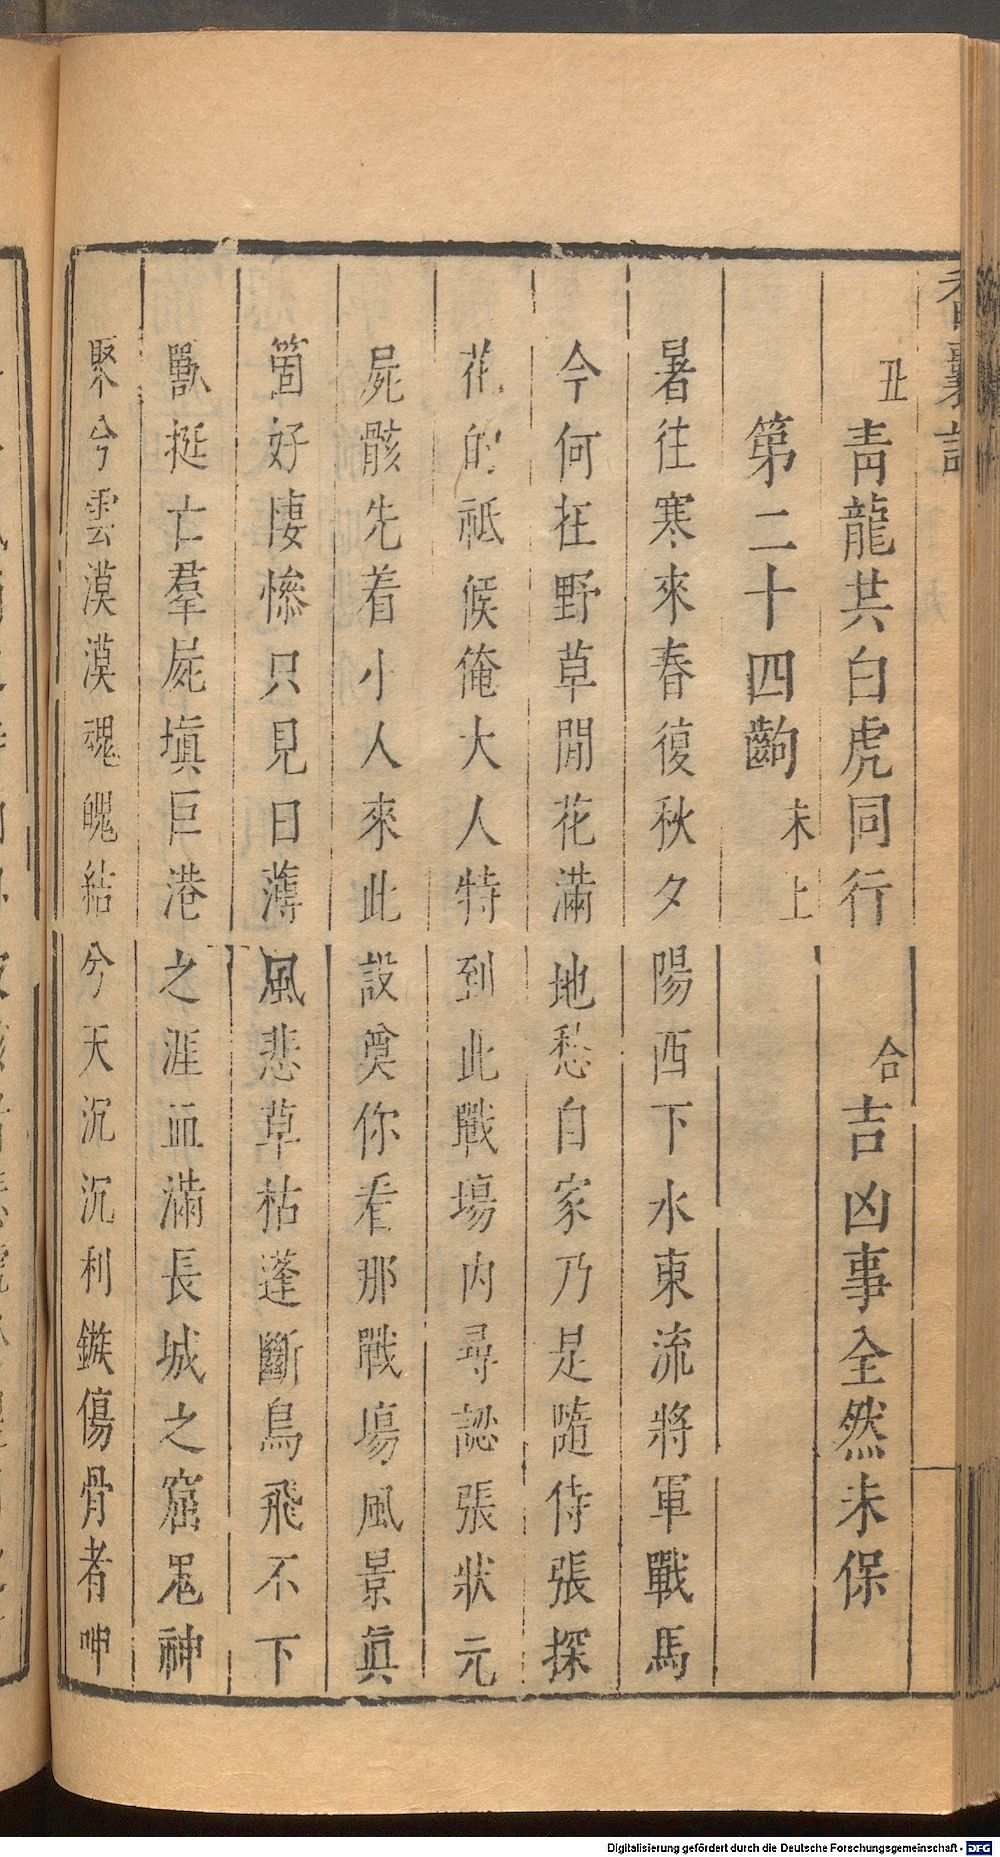 香囊記
丑青龍共白虎同行 合吉凶事全然未保
第二十四齣 末上
暑往寒來春復秋夕陽西下水東流將軍戰馬
今何在野草閒花滿地愁自家乃是隨侍張探
花的祗候俺大人特到此戰場內尋認張狀元
屍骸先着小人來此設奠你看那戰場風景眞
箇好悽慘只見日薄風悲草枯蓬斷鳥飛不下
獸挺亡羣屍塡巨港之涯血滿長城之窟鬼神
聚兮雲漠漠魂魄結兮天沉沉利鏃傷骨者呻
Digitalisierung gefördert durch die Deutsche Forschungsgemeinschaft - DFG